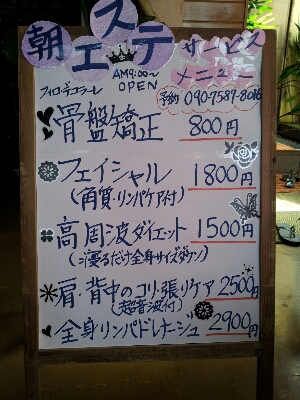 朝エステ
サービス
メニュー
AM9:00〜
OPEN
予約 090-7587-8016
骨盤矯正 800円
フェイシャル 1800円
(角質・リンパケア付)
高周波ダイエット 1500円
(寝るだけ全身サイズダウン)
肩・背中のコリ・張りケア 2500円
(超音波付)
全身リンパドレナージュ 2900円